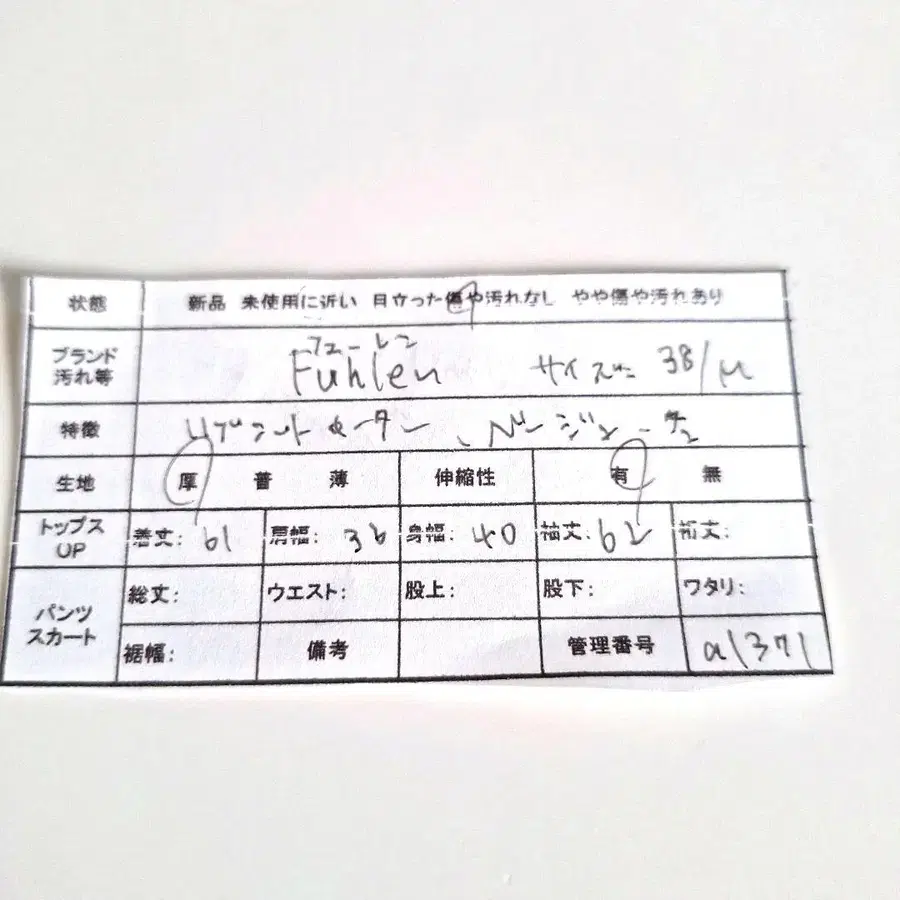 状態 新品 未使用に近い 目立った傷や汚れなし やや傷や汚れあり
ブランド 汚れ等 フューレン
Fuhlen サイズ 38/M
特徴
生地 厚 普 薄 伸縮性 有 無
トップス UP 着丈: 61 肩幅: 36 身幅: 40 袖丈: 62 裄丈:
パンツ スカート 総丈: ウエスト: 股上: 股下: ワタリ:
裾幅: 備考 管理番号 a1371